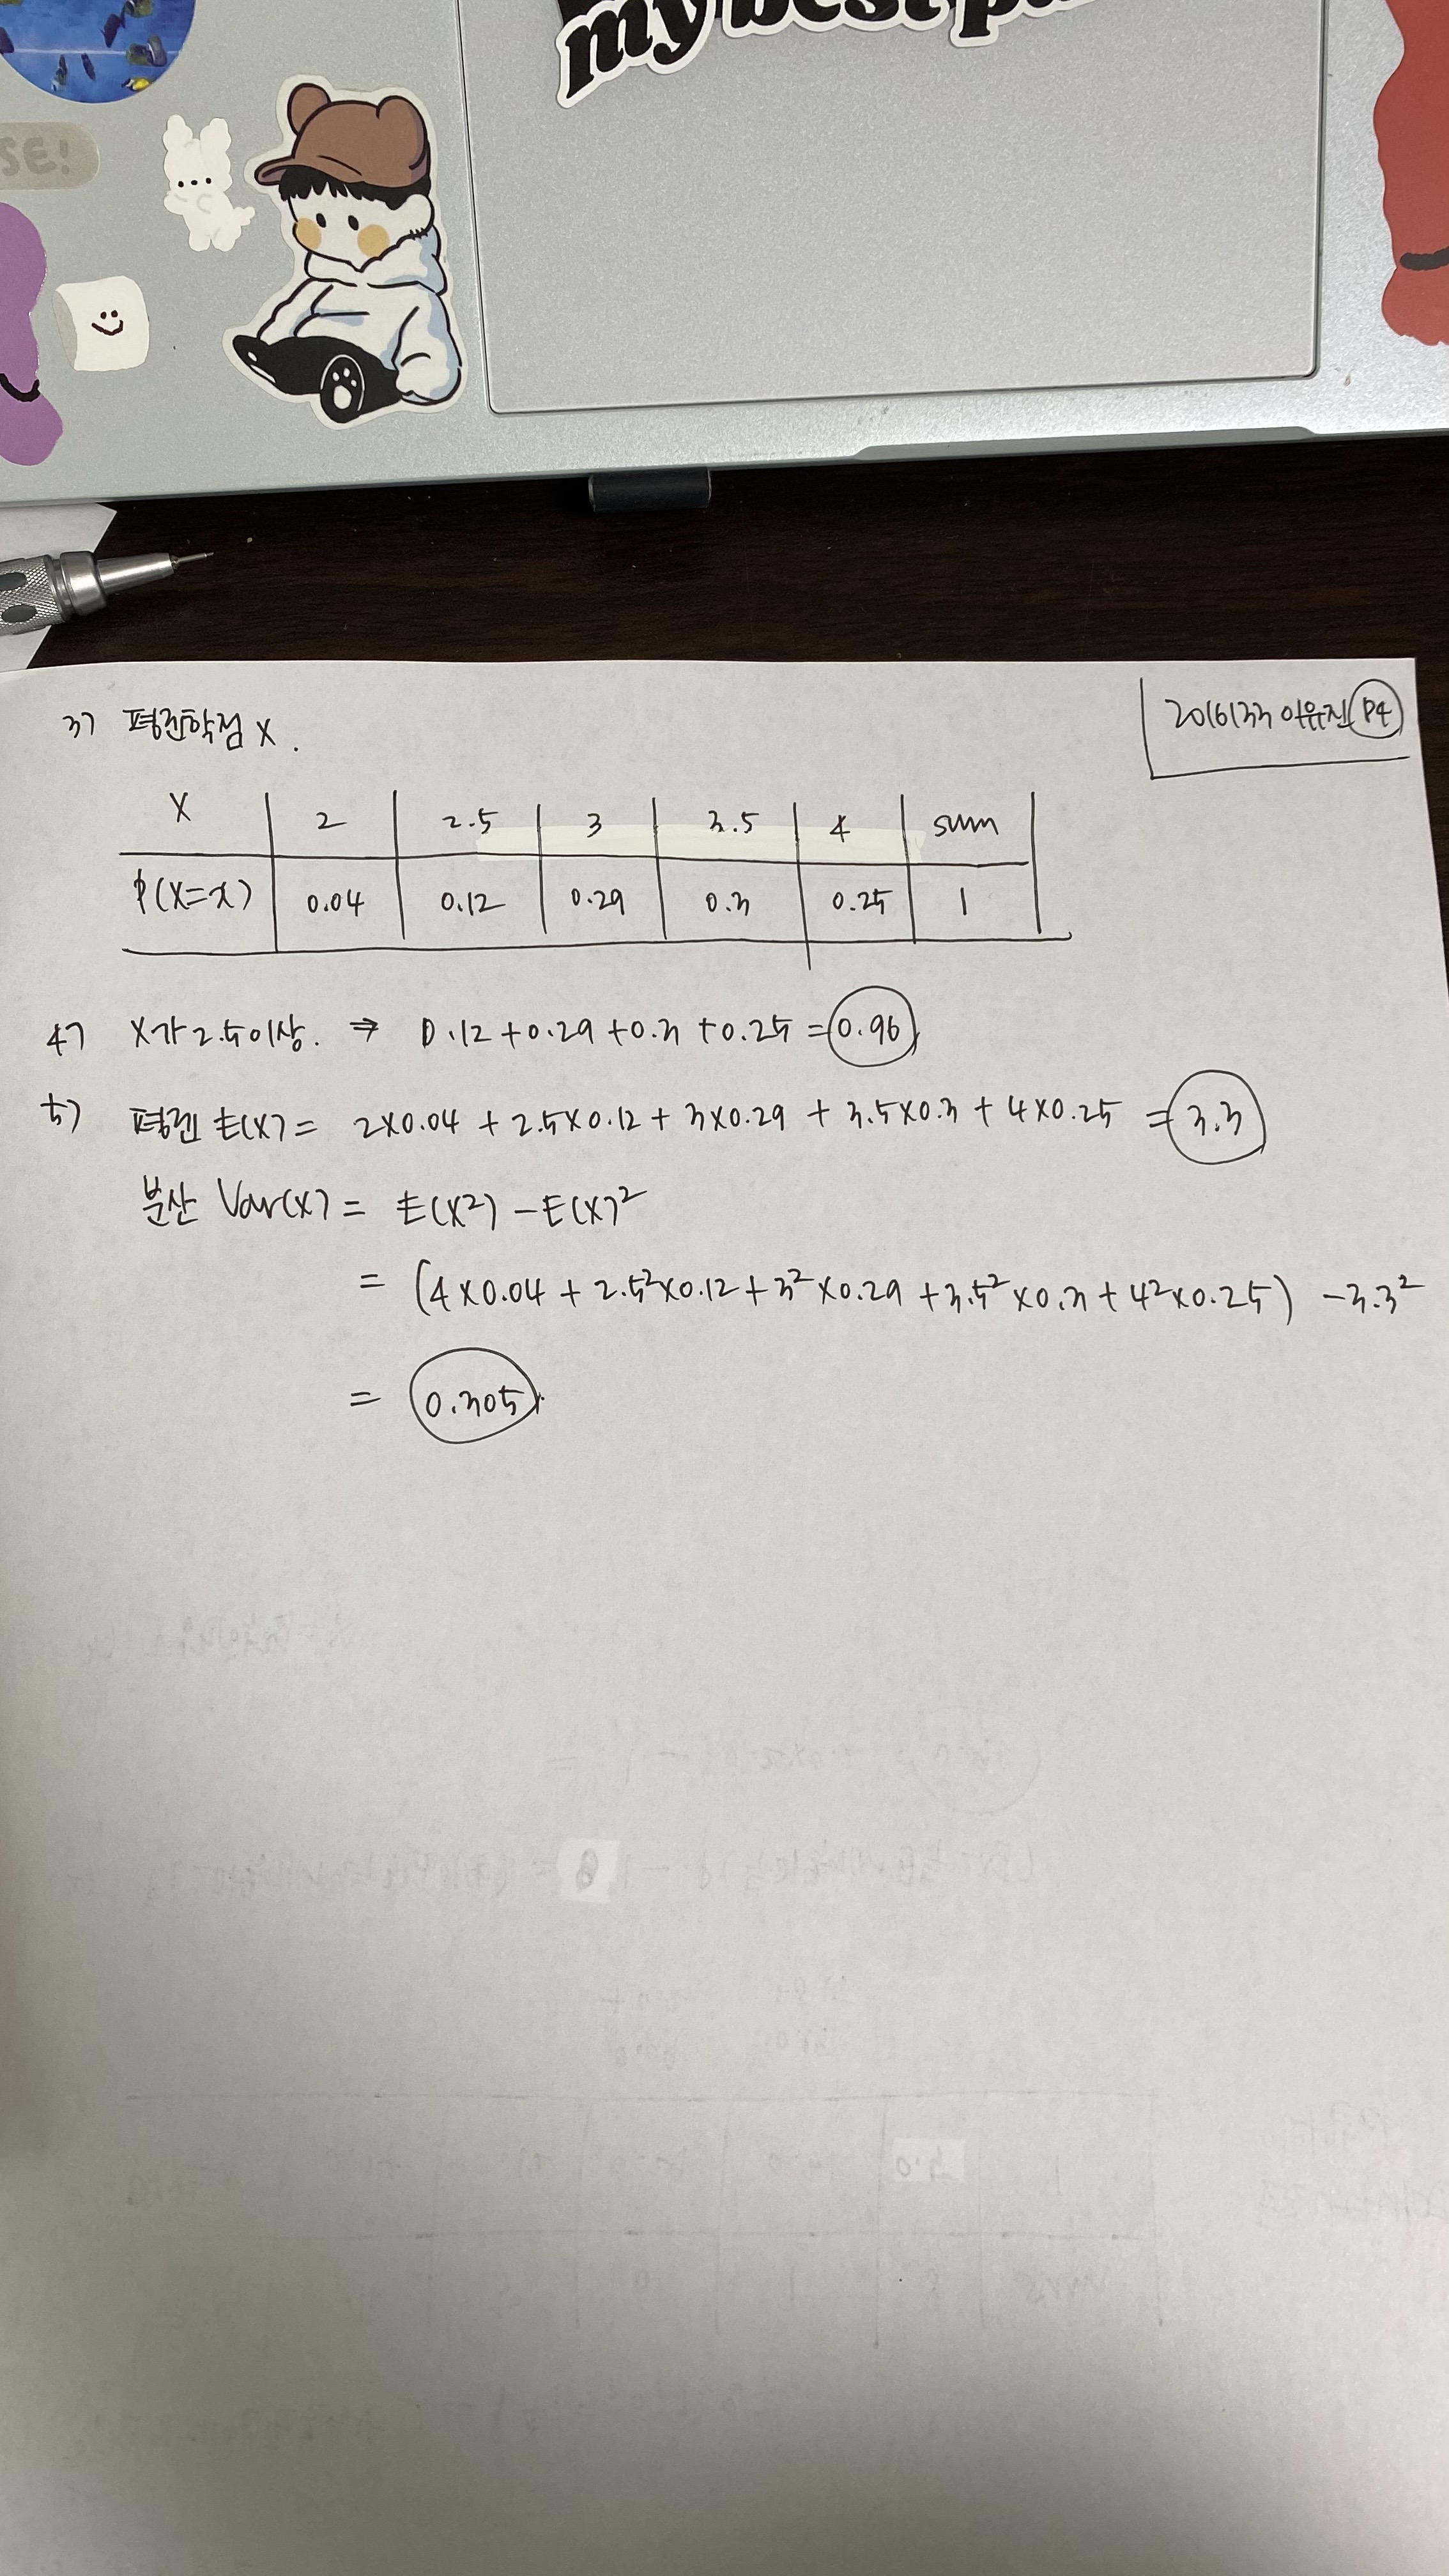 my best
SE!
2016133 이유진 P4
3) 평균학점 X.
X 2 2.5 3 3.5 4 sum
P(X=x) 0.04 0.12 0.29 0.3 0.25 1
4) X가 2.5이상. ⇒ 0.12+0.29+0.3+0.25=0.96
5) 평균 E(X)= 2×0.04+2.5×0.12+3×0.29+3.5×0.3+4×0.25=3.3
분산 Var(X)= E(X²)-E(X)²
= (4×0.04+2.5²×0.12+3²×0.29+3.5²×0.3+4²×0.25) -3.3²
= 0.305